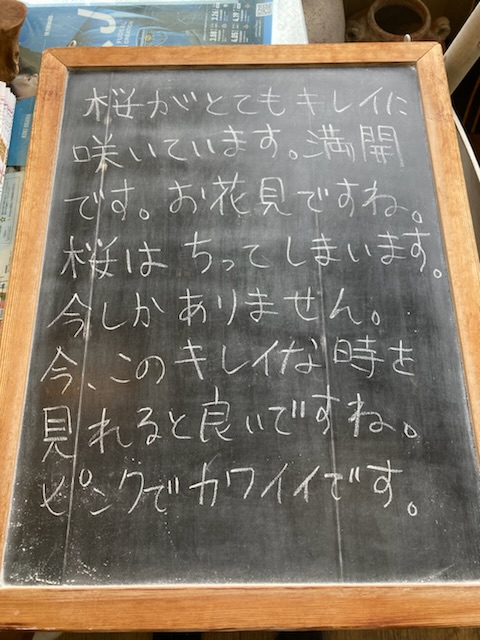 桜がとてもキレイに
咲いています。満開
です。お花見ですね。
桜は ちって しまいます。
今しか ありません。
今、このキレイな時を
見れると良いですね。
ピンクでカワイイです。